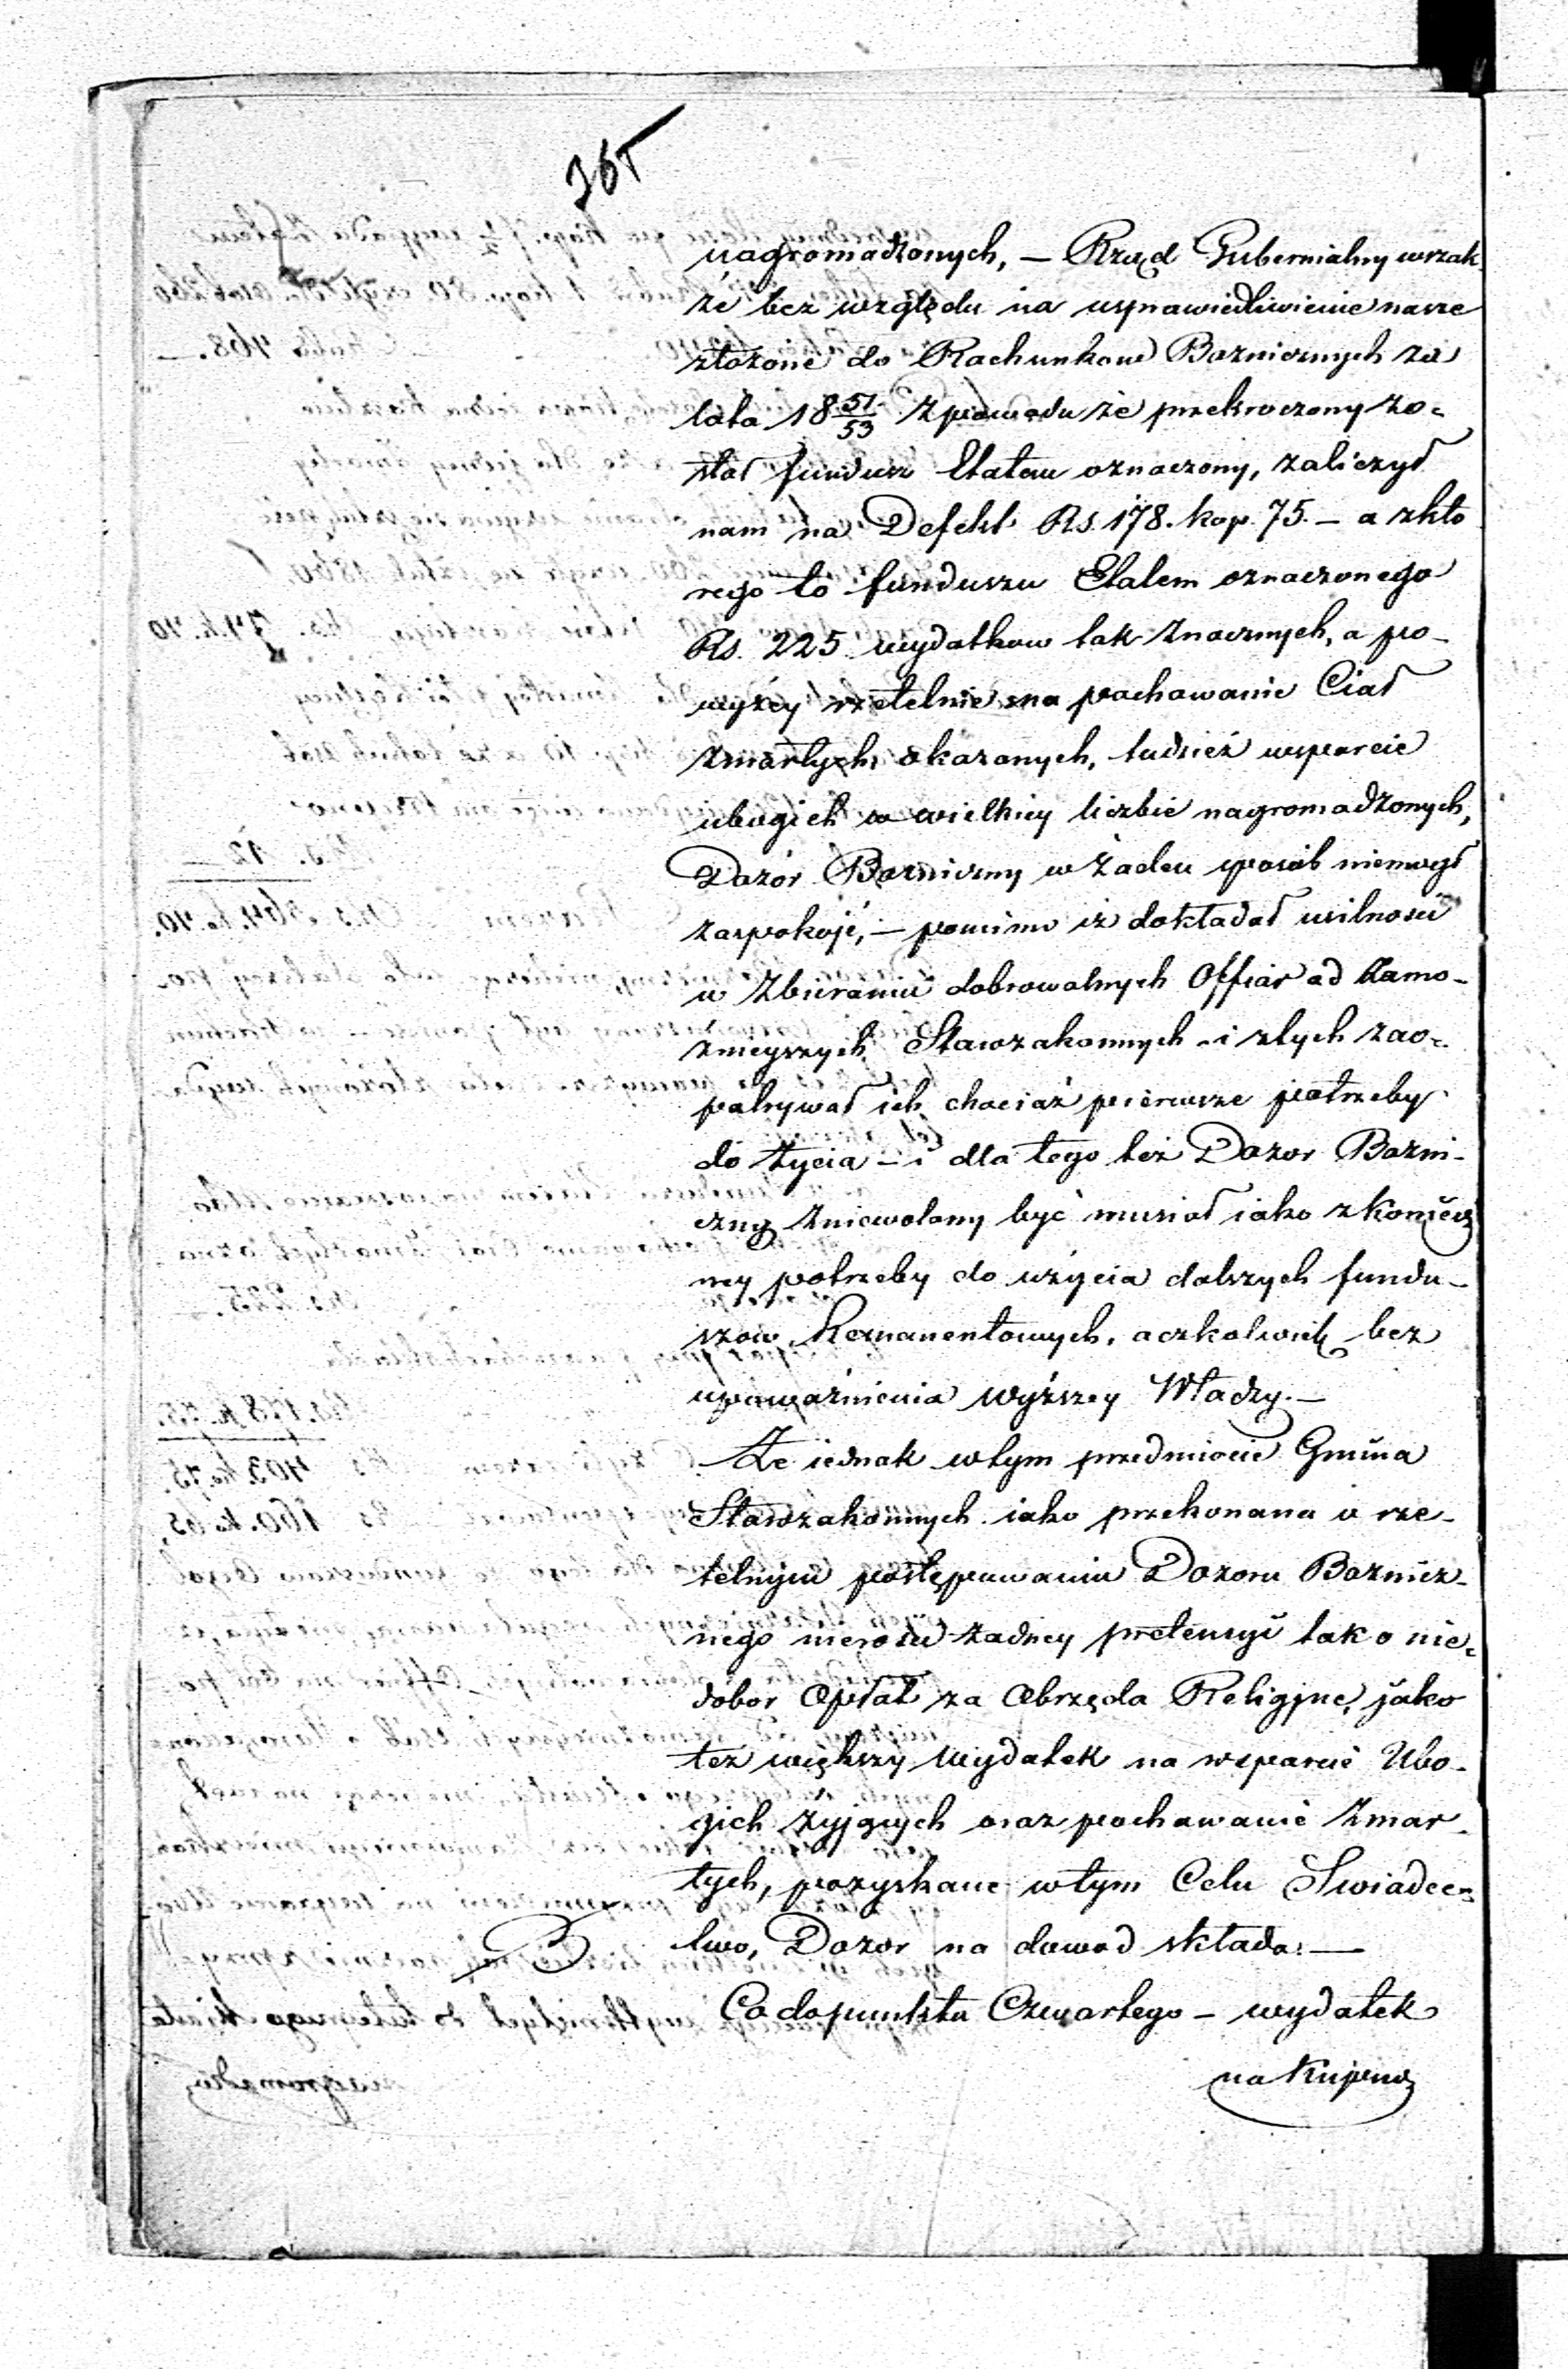 365
nagromadzonych, — Rząd Gubernialny wszak
że bez względu na usprawiedliwienie nasze
złożone do Rachunkow Bozniczych za
lata 18 51/53 z powodu że przekroczony zo=
stał fundusz Etatem oznaczony, zaliczył
nam na Defekt Rs. 178. kop. 75. — a z kto
rego to funduszu Etatem oznaczonego
Rs. 225 wydatkow tak znacznych, a po-
wyżey rzetelnie na pochowanie Ciał
zmarłych okazanych, tudzież wsparcie
ubogich w wielkiey liczbie nagromadzonych,
Dozór Bozniczny w żaden sposób niemógł
zaspokoić, — pomimo iż dokładał usilności
w zbieraniu dobrowolnych Offiar od Zamo-
znieyszych Starozakonnych - i z tych zao=
patrywał ich chociaż pierwsze potrzeby
do życia — i dla tego też Dozor Bozni-
czny zniewolony być musiał iako z koniecz
ney potrzeby do użycia dalszych fundu-
szow Remanentowych, aczkolwiek bez
upoważnienia wyższey Władzy. —
Że iednak w tym przedmiocie Gmina
Starozakonnych iako przekonana o rze-
telnym postępowaniu Dozoru Boznicz-
nego nierości żadney pretensyi tak o nie=
dobor Opłat za Obrzęda Religijne, jako
też większy wydatek na wsparcie Ubo-
gich żyjących oraz pochowanie Zmar-
łych, pozyskane w tym Celu Świadec=
two, Dozor na dowod składa: —
Co do punktu Czwartego — wydatek
na Kupno